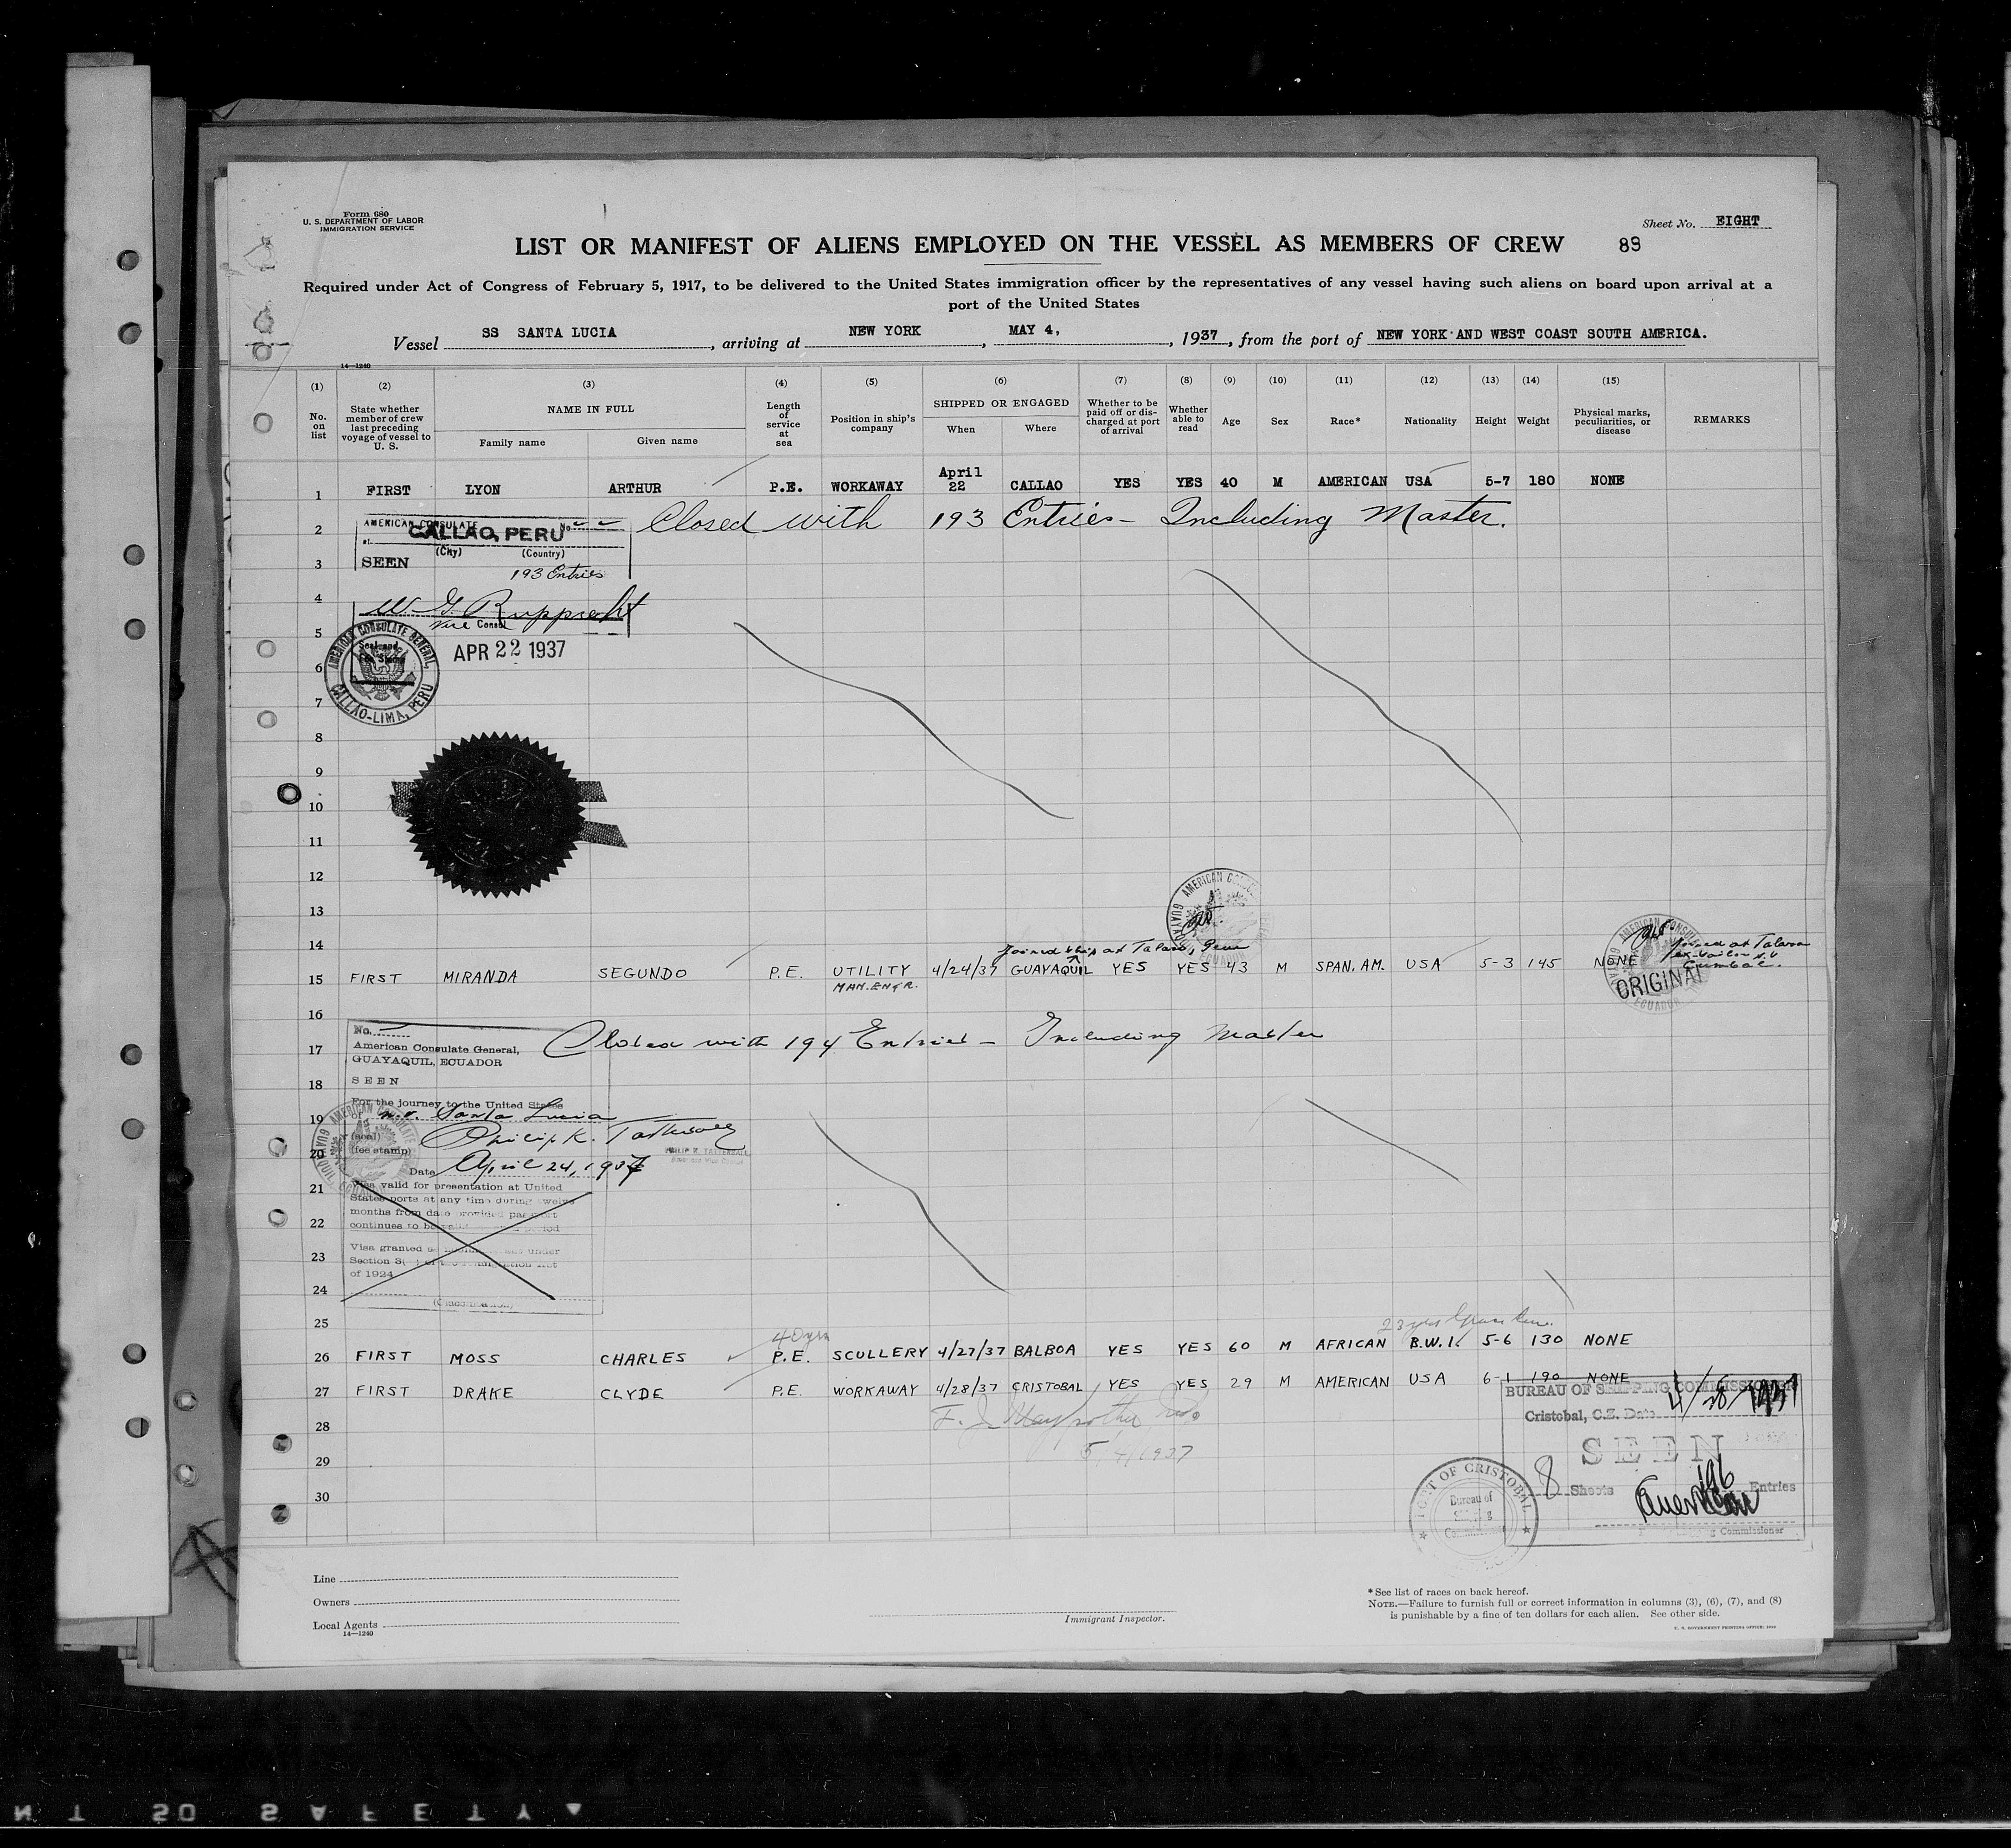 Form 680
U. S. DEPARTMENT OF LABOR
IMMIGRATION SERVICE
Sheet No. EIGHT
LIST OR MANIFEST OF ALIENS EMPLOYED ON THE VESSEL AS MEMBERS OF CREW 89
Required under Act of Congress of February 5, 1917, to be delivered to the United States immigration officer by the representatives of any vessel having such aliens on board upon arrival at a
port of the United States
Vessel SS SANTA LUCIA, arriving at NEW YORK, MAY 4, 1937, from the port of NEW YORK AND WEST COAST SOUTH AMERICA.
14—1240
(1) (2) (3) (4) (5) (6) (7) (8) (9) (10) (11) (12) (13) (14) (15)
No. on list
State whether member of crew last preceding voyage of vessel to U. S.
NAME IN FULL
Family name
Given name
Length of service at sea
Position in ship's company
SHIPPED OR ENGAGED
When
Where
Whether to be paid off or discharged at port of arrival
Whether able to read
Age
Sex
Race*
Nationality
Height
Weight
Physical marks, peculiarities, or disease
REMARKS
1 FIRST LYON ARTHUR P.E. WORKAWAY April 22 CALLAO YES YES 40 M AMERICAN USA 5-7 180 NONE
2 Closed with 193 Entries - Including Master.
AMERICAN CONSULATE No.
CALLAO, PERU
(City) (Country)
3 SEEN
193 Entries
4 W G Rupprecht
Vice Consul
5
AMERICAN CONSULATE GENERAL, CALLAO-LIMA, PERU
APR 22 1937
6
7
8
9
10
11
12
AMERICAN CONSUL
GUAYAQUIL
13
14 Joined ship at Talara, Peru
15 FIRST MIRANDA SEGUNDO P.E. UTILITY 4/24/37 GUAYAQUIL YES YES 43 M SPAN. AM. USA 5-3 145 NONE
Joined at Talara
ORIGINAL
ECUADOR
16
No.
17 Closed with 194 Entries - Including Master
American Consulate General,
GUAYAQUIL, ECUADOR
18 SEEN
For the journey to the United States
19 of m.v. Santa Lucia
(seal)
Philip K. Tattersall
20 (fee stamp)
PHILIP K. TATTERSALL
Date April 24, 1937
21 Visa valid for presentation at United
States ports at any time during twelve
months from date provided passport
22 continues to be valid period
23 Visa granted under
Section 3
24 of 1924
25
40 yrs
23 yrs
26 FIRST MOSS CHARLES P.E. SCULLERY 4/27/37 BALBOA YES YES 60 M AFRICAN B.W.I. 5-6 130 NONE
27 FIRST DRAKE CLYDE P.E. WORKAWAY 4/28/37 CRISTOBAL YES YES 29 M AMERICAN USA 6-1 190 NONE
BUREAU OF SHIPPING COMMISSIONER
Cristobal, C.Z. Date 4/28/1937
28
SEEN
29
5/4/1937
8 Sheets 196 Entries
30
Commissioner
PORT OF CRISTOBAL
Bureau of
Line
Owners
Local Agents
14—1240
Immigrant Inspector.
* See list of races on back hereof.
NOTE.—Failure to furnish full or correct information in columns (3), (6), (7), and (8)
is punishable by a fine of ten dollars for each alien. See other side.
U. S. GOVERNMENT PRINTING OFFICE
NT 50 SAFETY